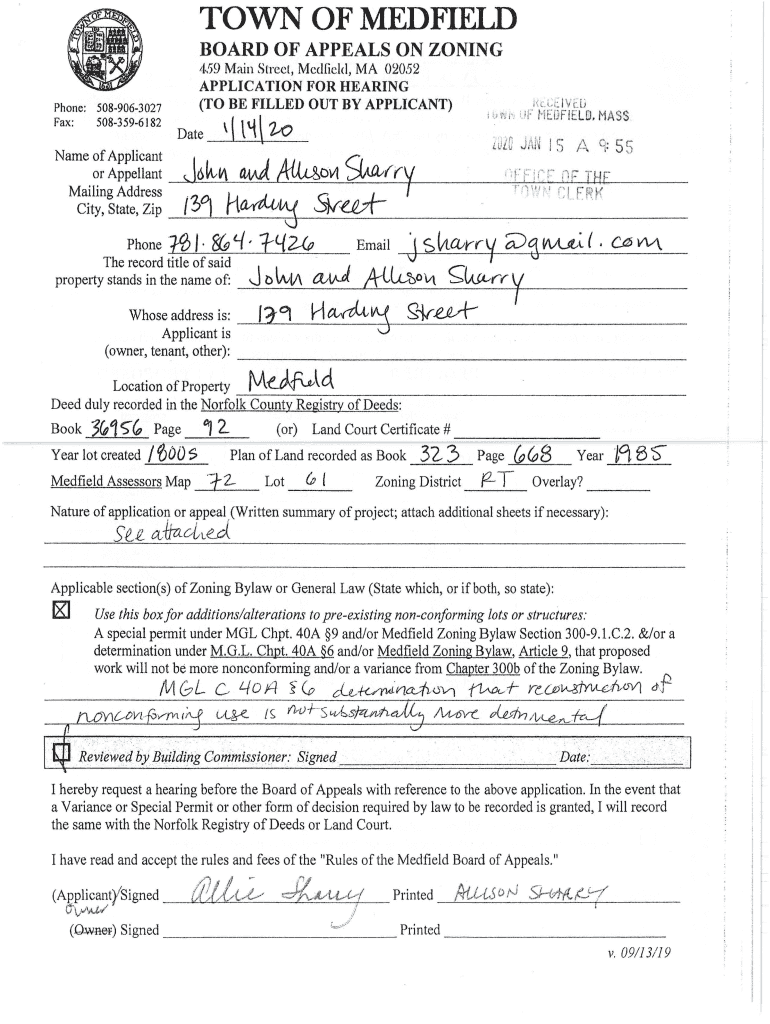 TOWN OF MEDFIELD
BOARD OF APPEALS ON ZONING
459 Main Street, Medfield, MA 02052
APPLICATION FOR HEARING
(TO BE FILLED OUT BY APPLICANT)
Phone: 508-906-3027
Fax: 508-359-6182
RECEIVED
TOWN OF MEDFIELD, MASS
2020 JAN 15 A 9:55
OFFICE OF THE
TOWN CLERK
Date 1/14/20
Name of Applicant
or Appellant John and Allison Sharry
Mailing Address
City, State, Zip 139 Harding Street
Phone 781.864.7426 Email jsharry@gmail.com
The record title of said
property stands in the name of: John and Allison Sharry
Whose address is: 139 Harding Street
Applicant is
(owner, tenant, other):
Location of Property Medfield
Deed duly recorded in the Norfolk County Registry of Deeds:
Book 36956 Page 92 (or) Land Court Certificate #
Year lot created 1800s Plan of Land recorded as Book 323 Page 668 Year 1985
Medfield Assessors Map 72 Lot 61 Zoning District RT Overlay?
Nature of application or appeal (Written summary of project; attach additional sheets if necessary):
See attached
Applicable section(s) of Zoning Bylaw or General Law (State which, or if both, so state):
Use this box for additions/alterations to pre-existing non-conforming lots or structures:
A special permit under MGL Chpt. 40A §9 and/or Medfield Zoning Bylaw Section 300-9.1.C.2. &/or a
determination under M.G.L. Chpt. 40A §6 and/or Medfield Zoning Bylaw, Article 9, that proposed
work will not be more nonconforming and/or a variance from Chapter 300b of the Zoning Bylaw.
MGL C 40A §6 determination that reconstruction of
nonconforming use is not substantially more detrimental
Reviewed by Building Commissioner: Signed Date:
I hereby request a hearing before the Board of Appeals with reference to the above application. In the event that
a Variance or Special Permit or other form of decision required by law to be recorded is granted, I will record
the same with the Norfolk Registry of Deeds or Land Court.
I have read and accept the rules and fees of the "Rules of the Medfield Board of Appeals."
(Applicant)/Signed Allie Sharry Printed ALLISON SHARRY
owner
(Owner) Signed Printed
v. 09/13/19